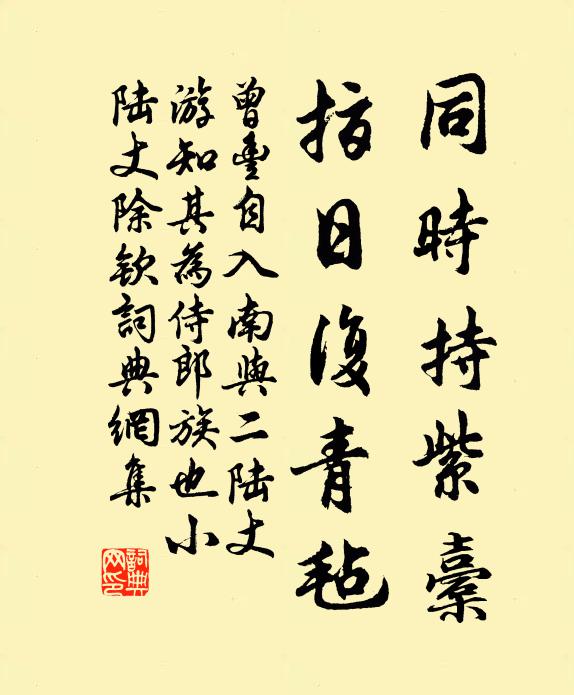 同時持紫橐
指日復青毡
曾豊自入南與二陸丈
游知其為侍郎族也小
陸丈除欽詞典網集
詞典网印